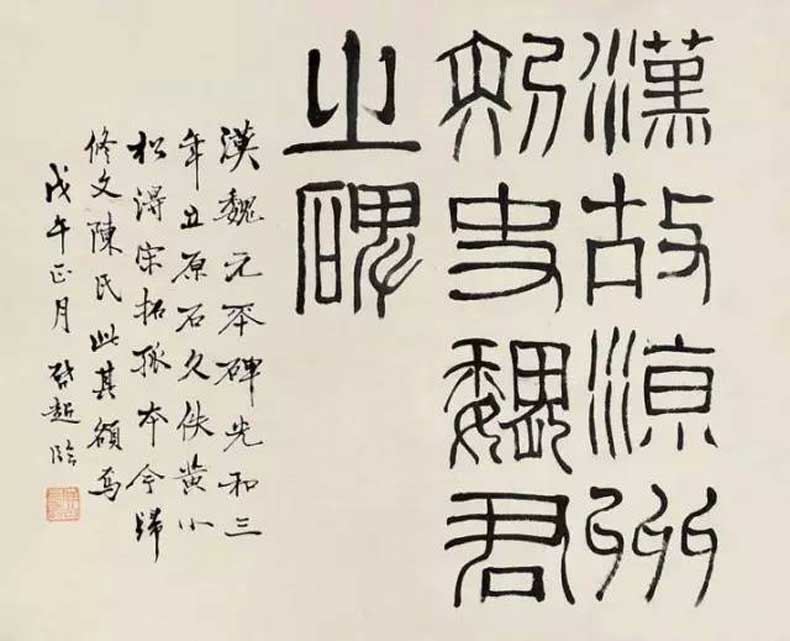 漢故涼州
刺史魏君
之碑
漢魏元丕碑光和三
年立原石久佚黃小
松得宋拓孤本今歸
修文陳氏此其額焉
戊午正月啟超臨